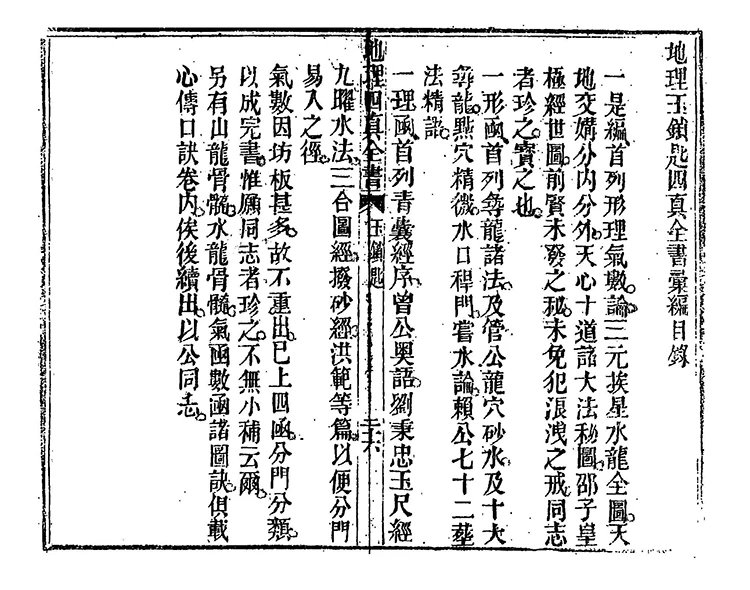 地理玉鎖匙四真全書彙編目錄
一是編首列形理氣數論三元挨星水龍全圖天
地交媾分內分外天心十道諸大法秘圖邵子皇
極經世圖前賢未發之秘未免犯浪洩之戒同志
者珍之寶之也
一形函首列尋龍諸法及管公龍穴砂水及十大
尋龍㸃穴精微水口稈門嘗水論賴公七十二塟
法精語
一理函首列青囊經序曾公奧語劉秉忠玉尺經
地理四真全書 玉鎖匙 二十六
九曜水法三合圖經撥砂經洪範等篇以便分門
易入之徑
氣數因坊板甚多故不重出已上四函分門分類
以成完書惟願同志者珍之不無小補云爾
另有山龍骨髓水龍骨髓氣函數函諸圖訣俱載
心傳口訣卷內俟後續出以公同志